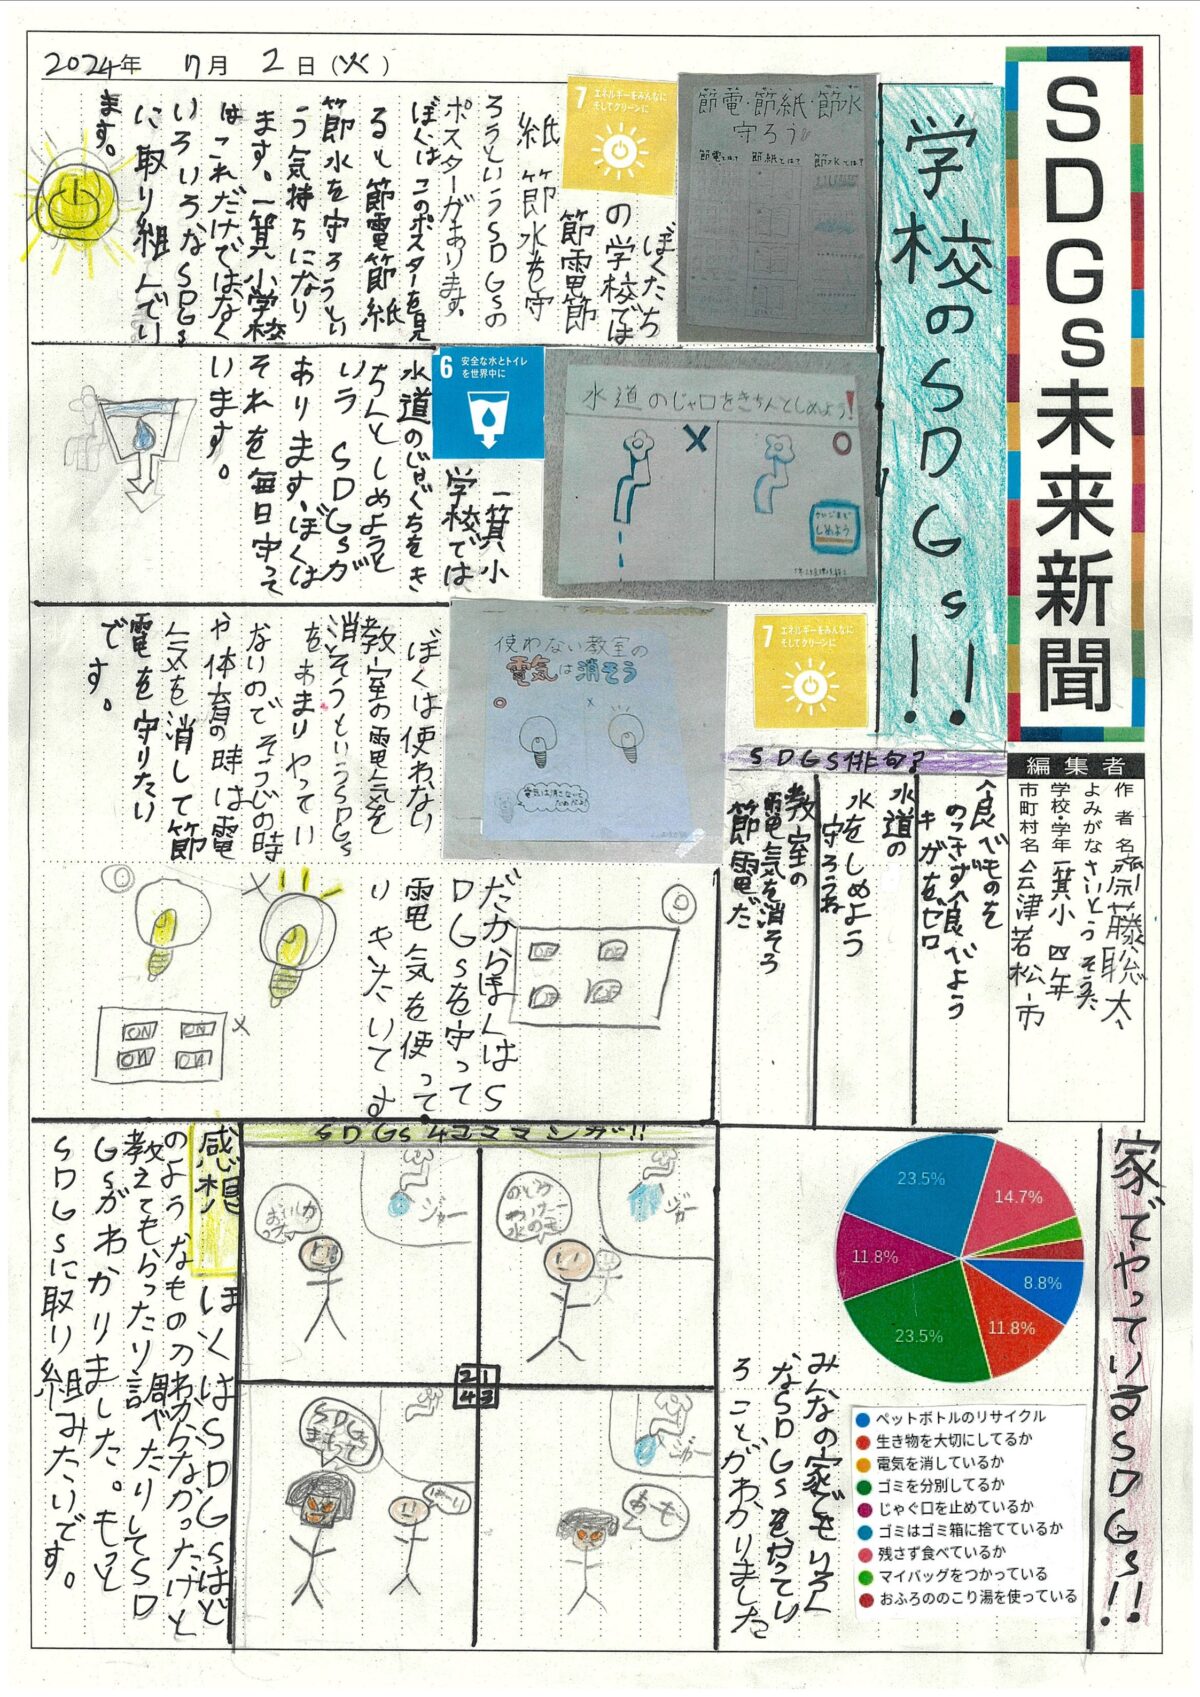 2024年 7月 2日(火)
SDGs未来新聞
編集者
作者名 斎藤聡太
よみがな さいとう そうた
学校・学年 一箕小 四年
市町村名 会津若松市
学校のSDGs!!
節電・節紙・節水
守ろう
節電とは? 節紙とは? 節水とは?
7 エネルギーをみんなに
そしてクリーンに
ぼくたち
の学校では
節電節
紙節水を守
ろうというSDGsの
ポスターがあります。
ぼくはこのポスターを見
ると節電節紙
節水を守ろうとい
う気持ちになり
ます。一箕小学校
はこれだけではなく
いろいろなSDGs
に取り組んでい
ます。
水道のじゃ口をきちんとしめよう!
しめよう
6 安全な水とトイレ
を世界中に
一箕小
学校では
水道のじゃぐちをき
ちんとしめようと
いう SDGsが
あります。ぼくは
それを毎日守って
います。
7 エネルギーをみんなに
そしてクリーンに
使わない教室の
電気は消そう
ぼくは使わない
教室の電気を
消そうというSDGs
をあまりやってい
ないのでそうじの時
や体育の時は電
気を消して節
電を守りたい
です。
だからぼくはS
DGsを守って
電気を使って
いきたいです
ON ON
ON ON
SDGS俳句?
食べものを
のこさず食べよう
キガをゼロ
水道の
水をしめよう
守ろうね
教室の
電気を消そう
節電だ
家でやっているSDGs!!
23.5%
14.7%
11.8%
8.8%
23.5%
11.8%
ペットボトルのリサイクル
生き物を大切にしてるか
電気を消しているか
ゴミを分別してるか
じゃぐ口を止めているか
ゴミはゴミ箱に捨てているか
残さず食べているか
マイバッグをつかっている
おふろののこり湯を使っている
みんなの家でもいろん
なSDGsをやってい
ることがわかりました
SDGs4コママンガ!!
1
ジャー
2
ジャー
3
ジャー
あーも
4
SDGs
まもって
はーい
感想
ぼくはSDGsはど
のようなものかわからなかったけど
教えてもらったり調べたりしてSD
Gsがわかりました。もっと
SDGsに取り組みたいです。